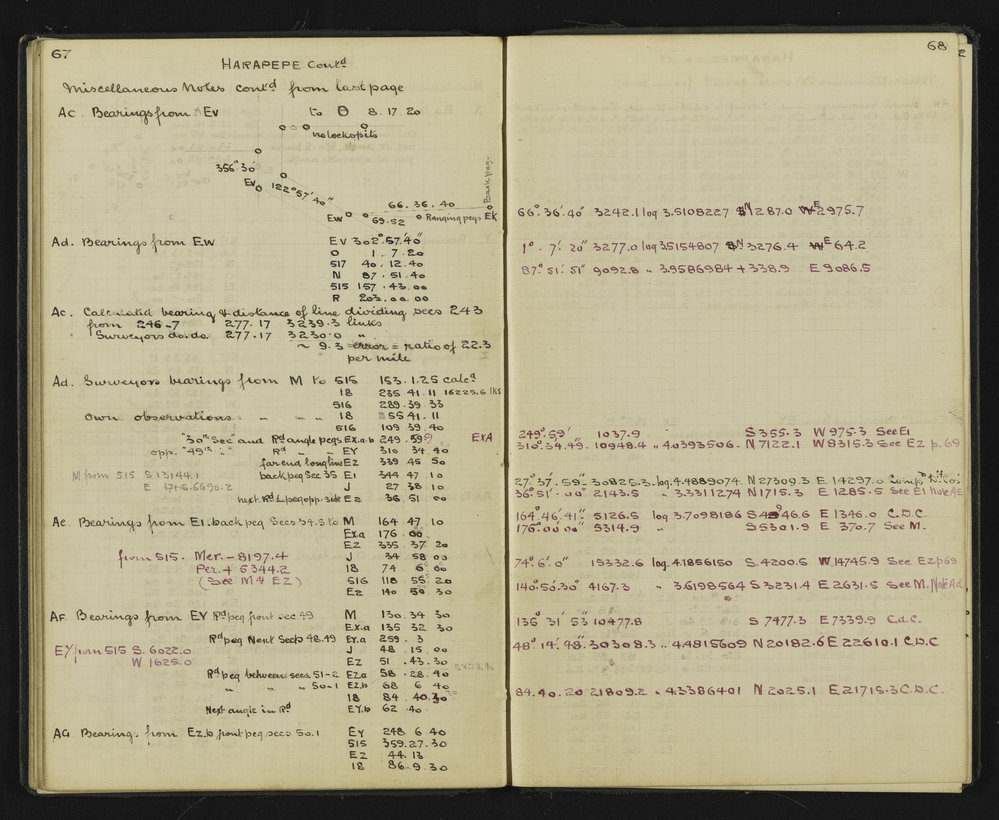 67
HARAPEPE Contd
Miscellaneous Notes contd from last page
Ac. Bearings from EV to Θ 8.17.20
no lockspits
356°30'
EV
122°57'40"
Back peg.
66.36.40
EW 69.52 Ranging pegs EK
Ad. Bearings from EW EV 302°.57.40"
O 1.7.20
517 40.12.40
N 87.51.40
515 157.43.00
R 203.00.00
Ac. Calculated bearing & distance of line dividing secs 243
from 246-7 277.17 3239.3 links
Surveyors do. do. 277.17 3230.0 "
~ 9.3 error = ratio of 22.3
per mile
Ad. Surveyors bearings from M to 515 153.1.25 calcd
18 235.41.11 16225.6 lks
516 289.39.33
Own observations " " " 18 55 41.11
516 109 39.40
"30th Sec" and Rd angle pegs Ex.a.b 249.59 ExA
opp. "49th " Rd " " EY 310.34.40
far end long line EZ 339 45 50
M from 515 S.13144.1 back peg Sec 35 E1 344 47.10
E 6690.2 J 27 38 10
next Rd L peg opp. side Ez 36 51.00
Ae. Bearings from E1. back peg Secs 34.5 to M 164.47.10
Ex.a 176.00
EZ 335.37 20
from 515. Mer. - 8197.4 J 34 58 00
Per. + 5344.2 18 74 6.00
(See M & EZ) 516 118 55 20
Ez 140 50 30
AF. Bearings from EY Rd peg front sec 49 M 130.34 30
Ex.a 135 32 30
Rd peg Next Secs 48.49 EY.a 259.3
EY from 515 S. 6022.0 J 48 15.00
W 1625.0 EZ 51.43.30
Rd peg between secs 51-2 EZ.a 58.28.40
" " " 50-1 EZ.b 68 6 40
18 84 40.30
Next angle in Rd EY.b 62 40.
AG. Bearings from Ez.b front peg secs 50.1 EY 248 6 40
515 359.27.30
EZ 44.13
18 86.9.30
68
66°.36'.40" 3242.1 log 3.5108227 N 1287.0 E 2975.7
1°.7'.20" 3277.0 log 3.5154807 N 3276.4 E 64.2
87°.51'.51" 9092.8 " 3.9586984 + 338.9 E 9086.5
249°.59' 1037.9 S 355.3 W 975.3 See E1
310°.34.49. 10948.4 " 4.0393506 N 7122.1 W 8315.3 See EZ p.69
27°.37'.59" 30825.3 log. 4.4889074 N 27309.3 E 14297.0
36°51'.00" 2143.5 " 3.3311274 N 1715.3 E 1285.5 See E1 note AE
164°.46'.41" 5126.5 log 3.7098186 S 4946.6 E 1346.0 C.D.C.
176°.00'.00" 5314.9 " S 5301.9 E 370.7 See M.
74°.6'.0" 15332.6 log. 4.1856150 S. 4200.5 W. 14745.9 See EZ p69
140°.50.30" 4167.3 " 3.6198564 S 3231.4 E 2631.5 See M. Note Ad
135° 31' 53" 10477.8 S 7477.3 E 7339.9 C.d.C.
48°.14'.48". 30308.3 " 4.4815609 N 20182.6 E 22610.1 C.D.C
84.40.20 21809.2 " 4.3386401 N 2025.1 E 21715.3 C.D.C.